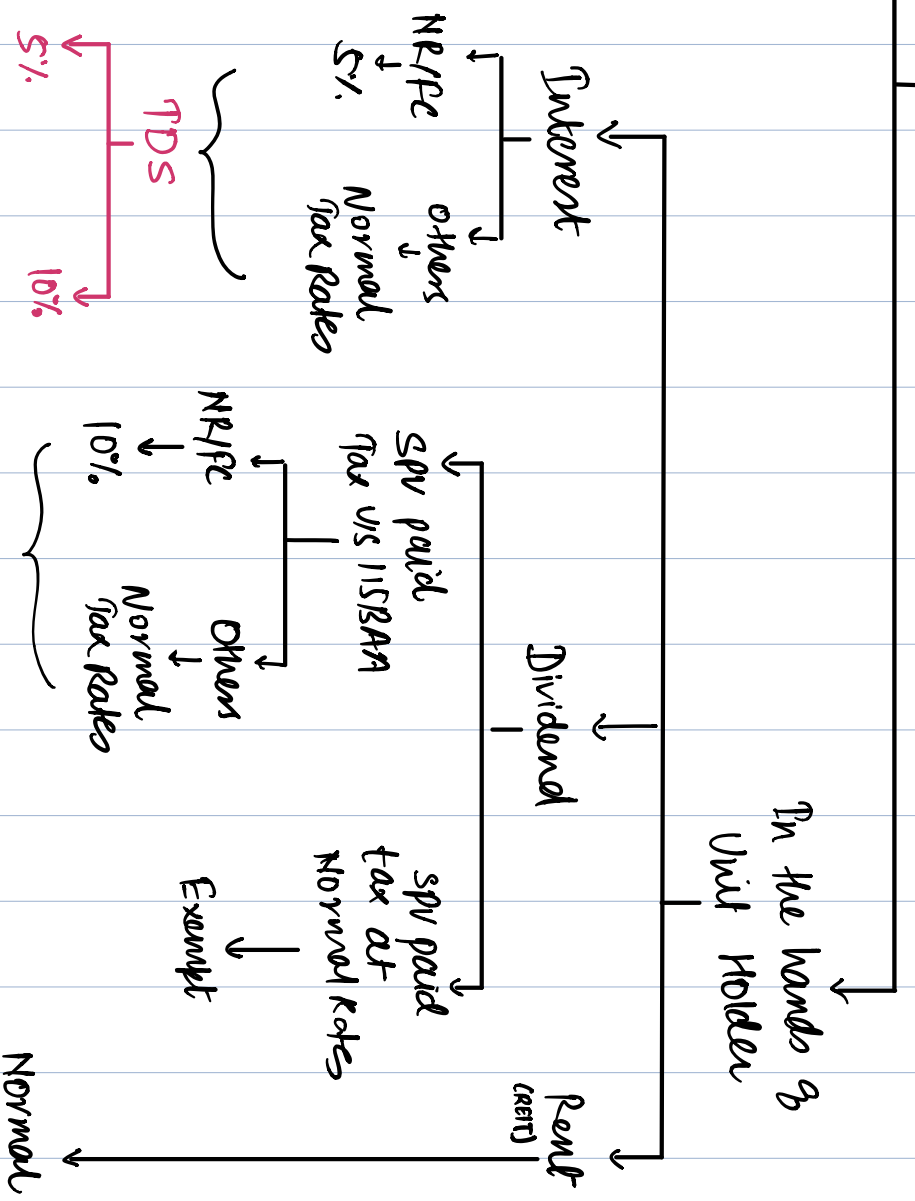 In the hands of
Unit Holder
Interest
NR/FC
5%
Others
Normal
Tax Rates
TDS
5%
10%
Dividend
SPV paid
Tax u/s 115BAA
NR/FC
10%
Others
Normal
Tax Rates
SPV paid
tax at
Normal Rates
Exempt
Rent
(REIT)
Normal